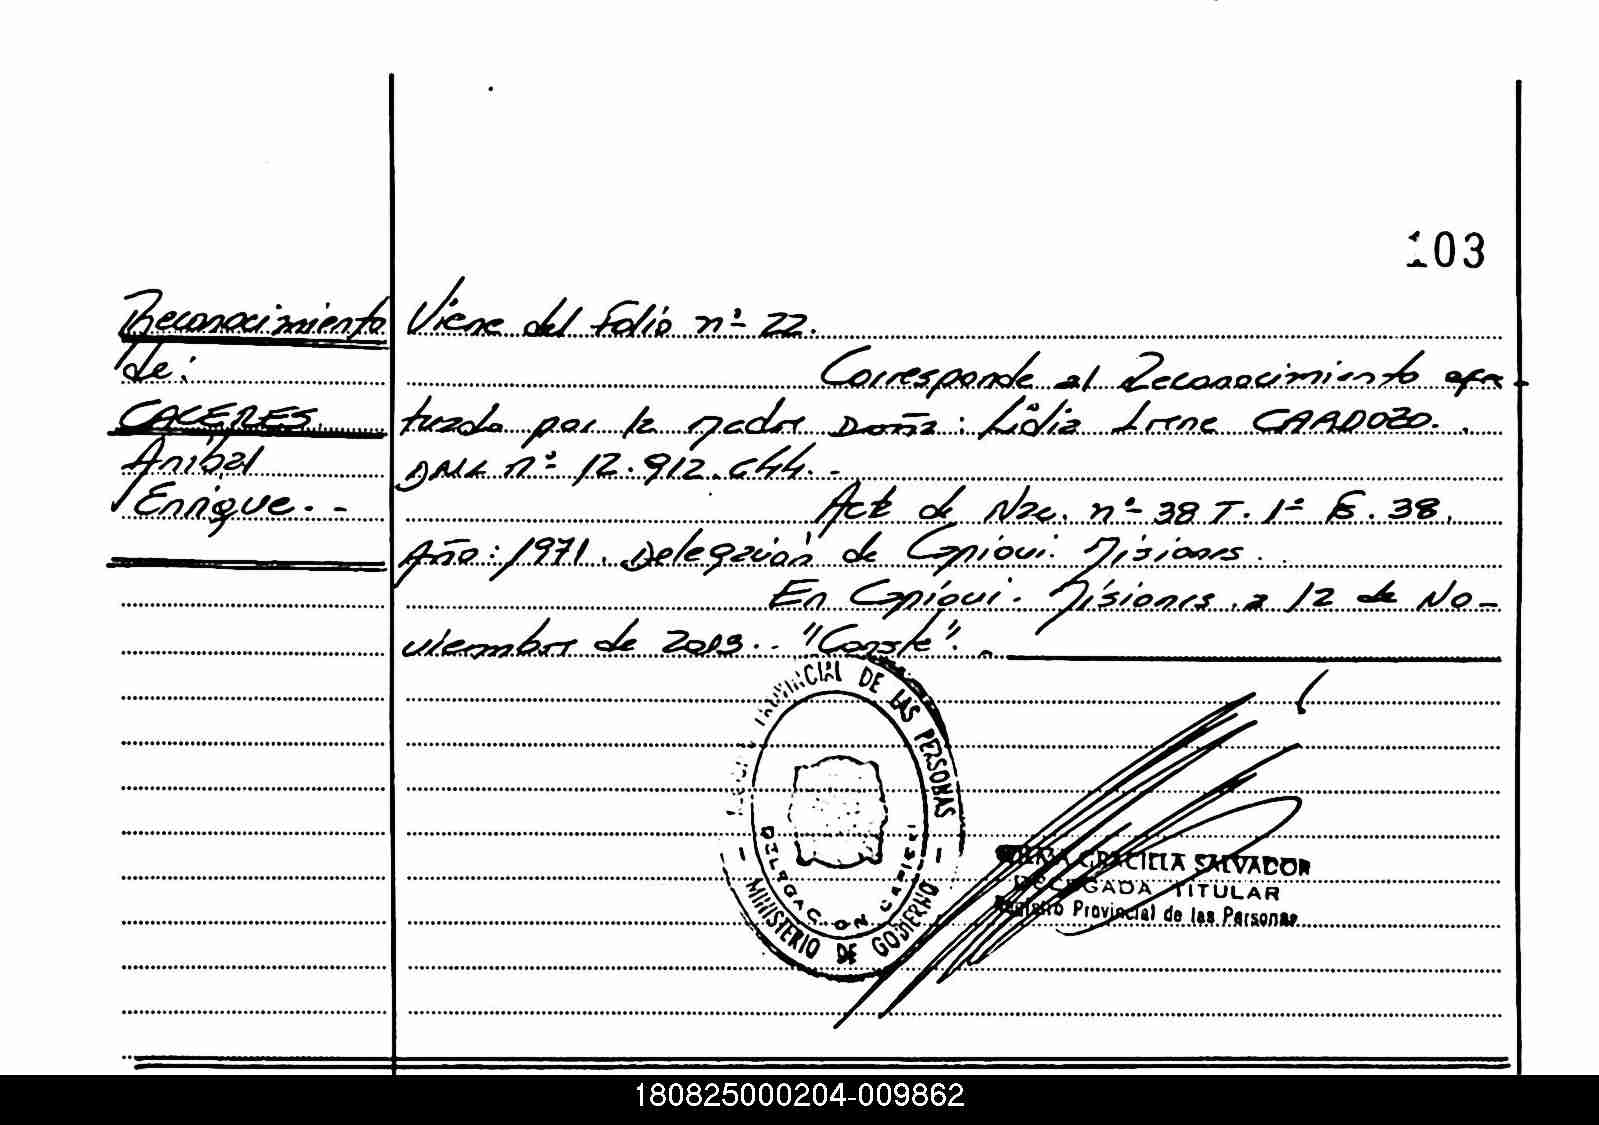 103
Reconocimiento
de:
CACERES
Aníbal
Enrique. -
Viene del folio nº 22.
Corresponde al Reconocimiento efec
tuado por la madre Doña: Lidia Irene CARDOZO.
DNI nº 12.912.644. -
Acta de Nac. nº 38 T. 1º F. 38.
Año: 1971. Delegación de Capioví. Misiones.
En Capioví. Misiones. a 12 de No-
viembre de 2013. . "Conste". .
PROVINCIAL DE LAS PERSONAS
DELEGACION CAPIOVI
- MINISTERIO DE GOBIERNO -
GRACIELA SALVADOR
DELEGADA TITULAR
Registro Provincial de las Personas
180825000204-009862